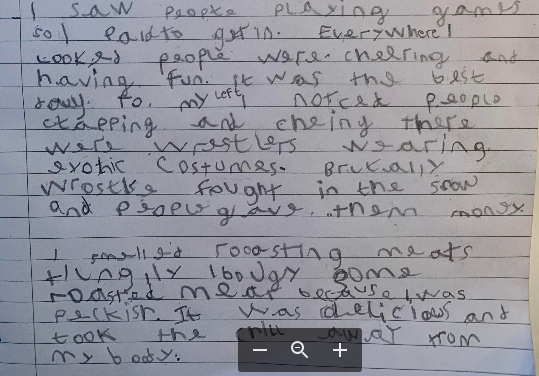 I saw people playing games
so I paid to get in. Everywhere I
looked people were cheering and
having fun. It was the best
day. to my left I noticed people
clapping and cheing there
were wrestlers wearing
exotic costumes. Brutally
wrostlse fought in the snow
and people gave them money
I smelled rooasting meats
I bougy some
roasted meat because I was
peckish. It was delicious and
took the chill away from
my body.